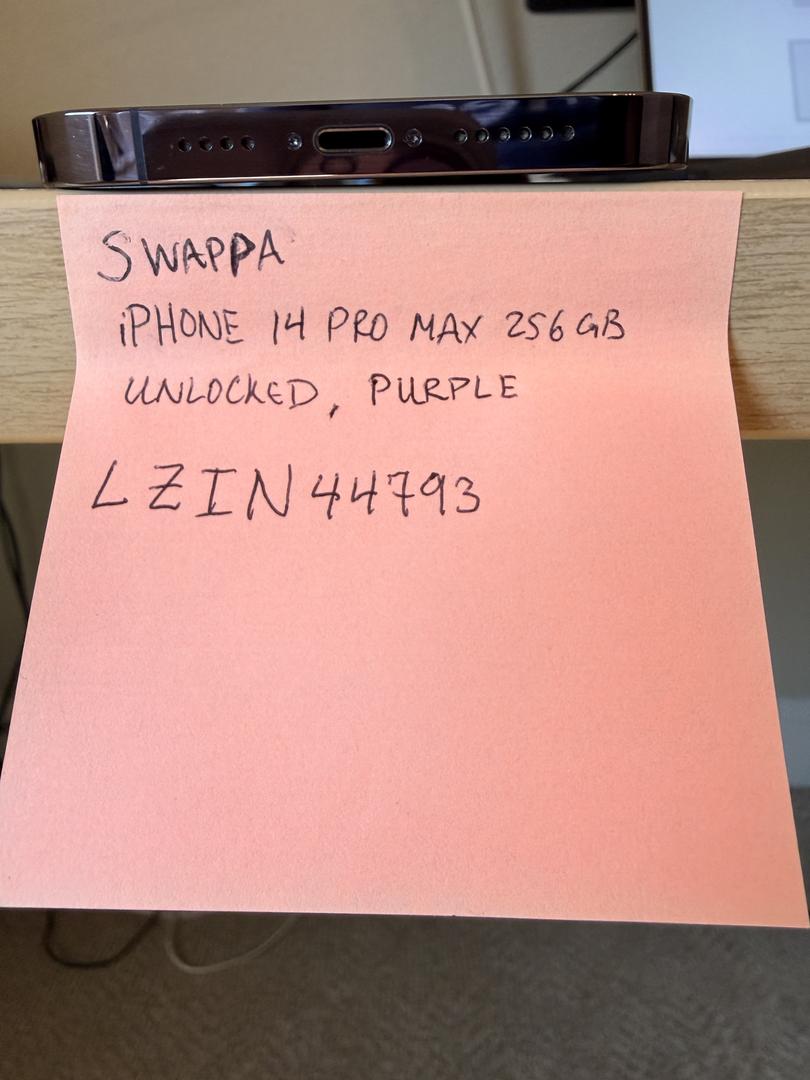 SWAPPA
iPHONE 14 PRO MAX 256GB
UNLOCKED, PURPLE
LZIN44793